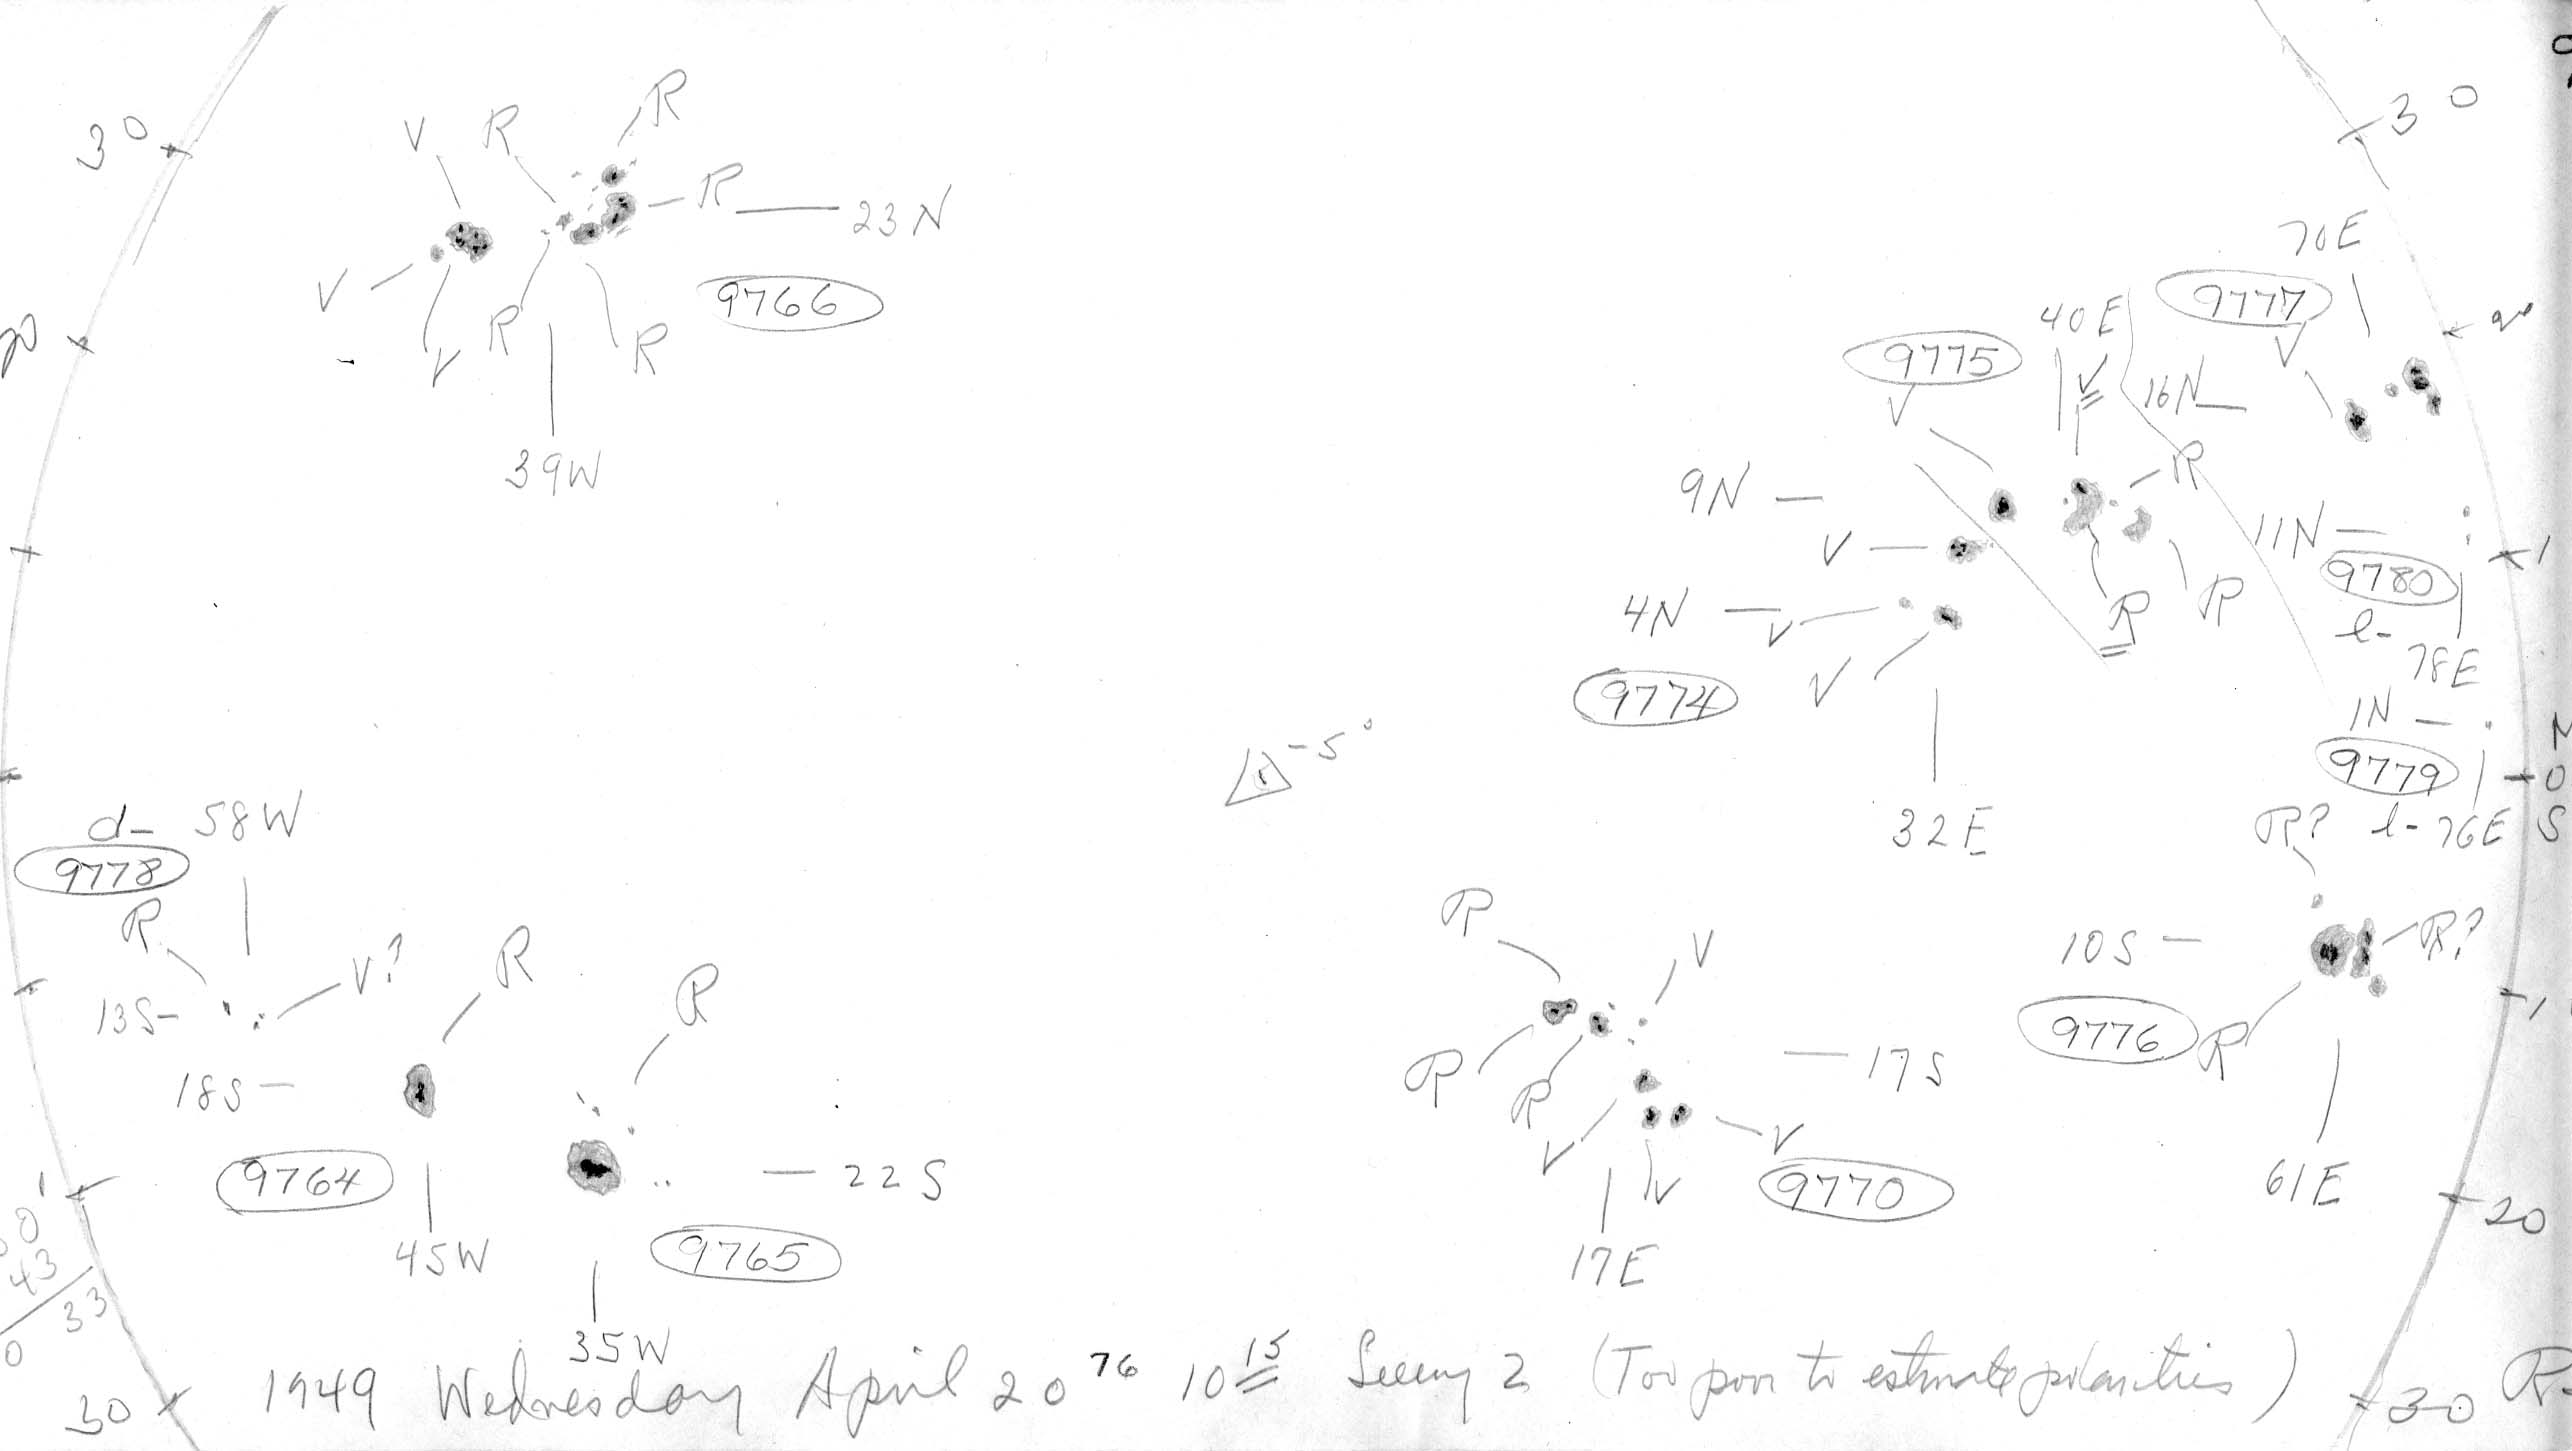 30
V R R
R 23N
V
9766
V R R
39W
30
70E
9777
V
40E
9775
V
V
16N
9N
R
V
11N
9780
l-
78E
4N
V
V
R
R
9774
1N
9779
l- 76E
32E
-5°
N
0
S
d- 58W
9778
R
V?
13S
R
18S
9764
45W
R
22S
9765
35W
R
V
R
R
V
V
V
17S
9770
17E
R?
10S
R?
9776
R
61E
20
43
33
0
30
1949 Wednesday April 20 76 10 15 Seeing 2 (Too poor to estimate polarities)
30
R